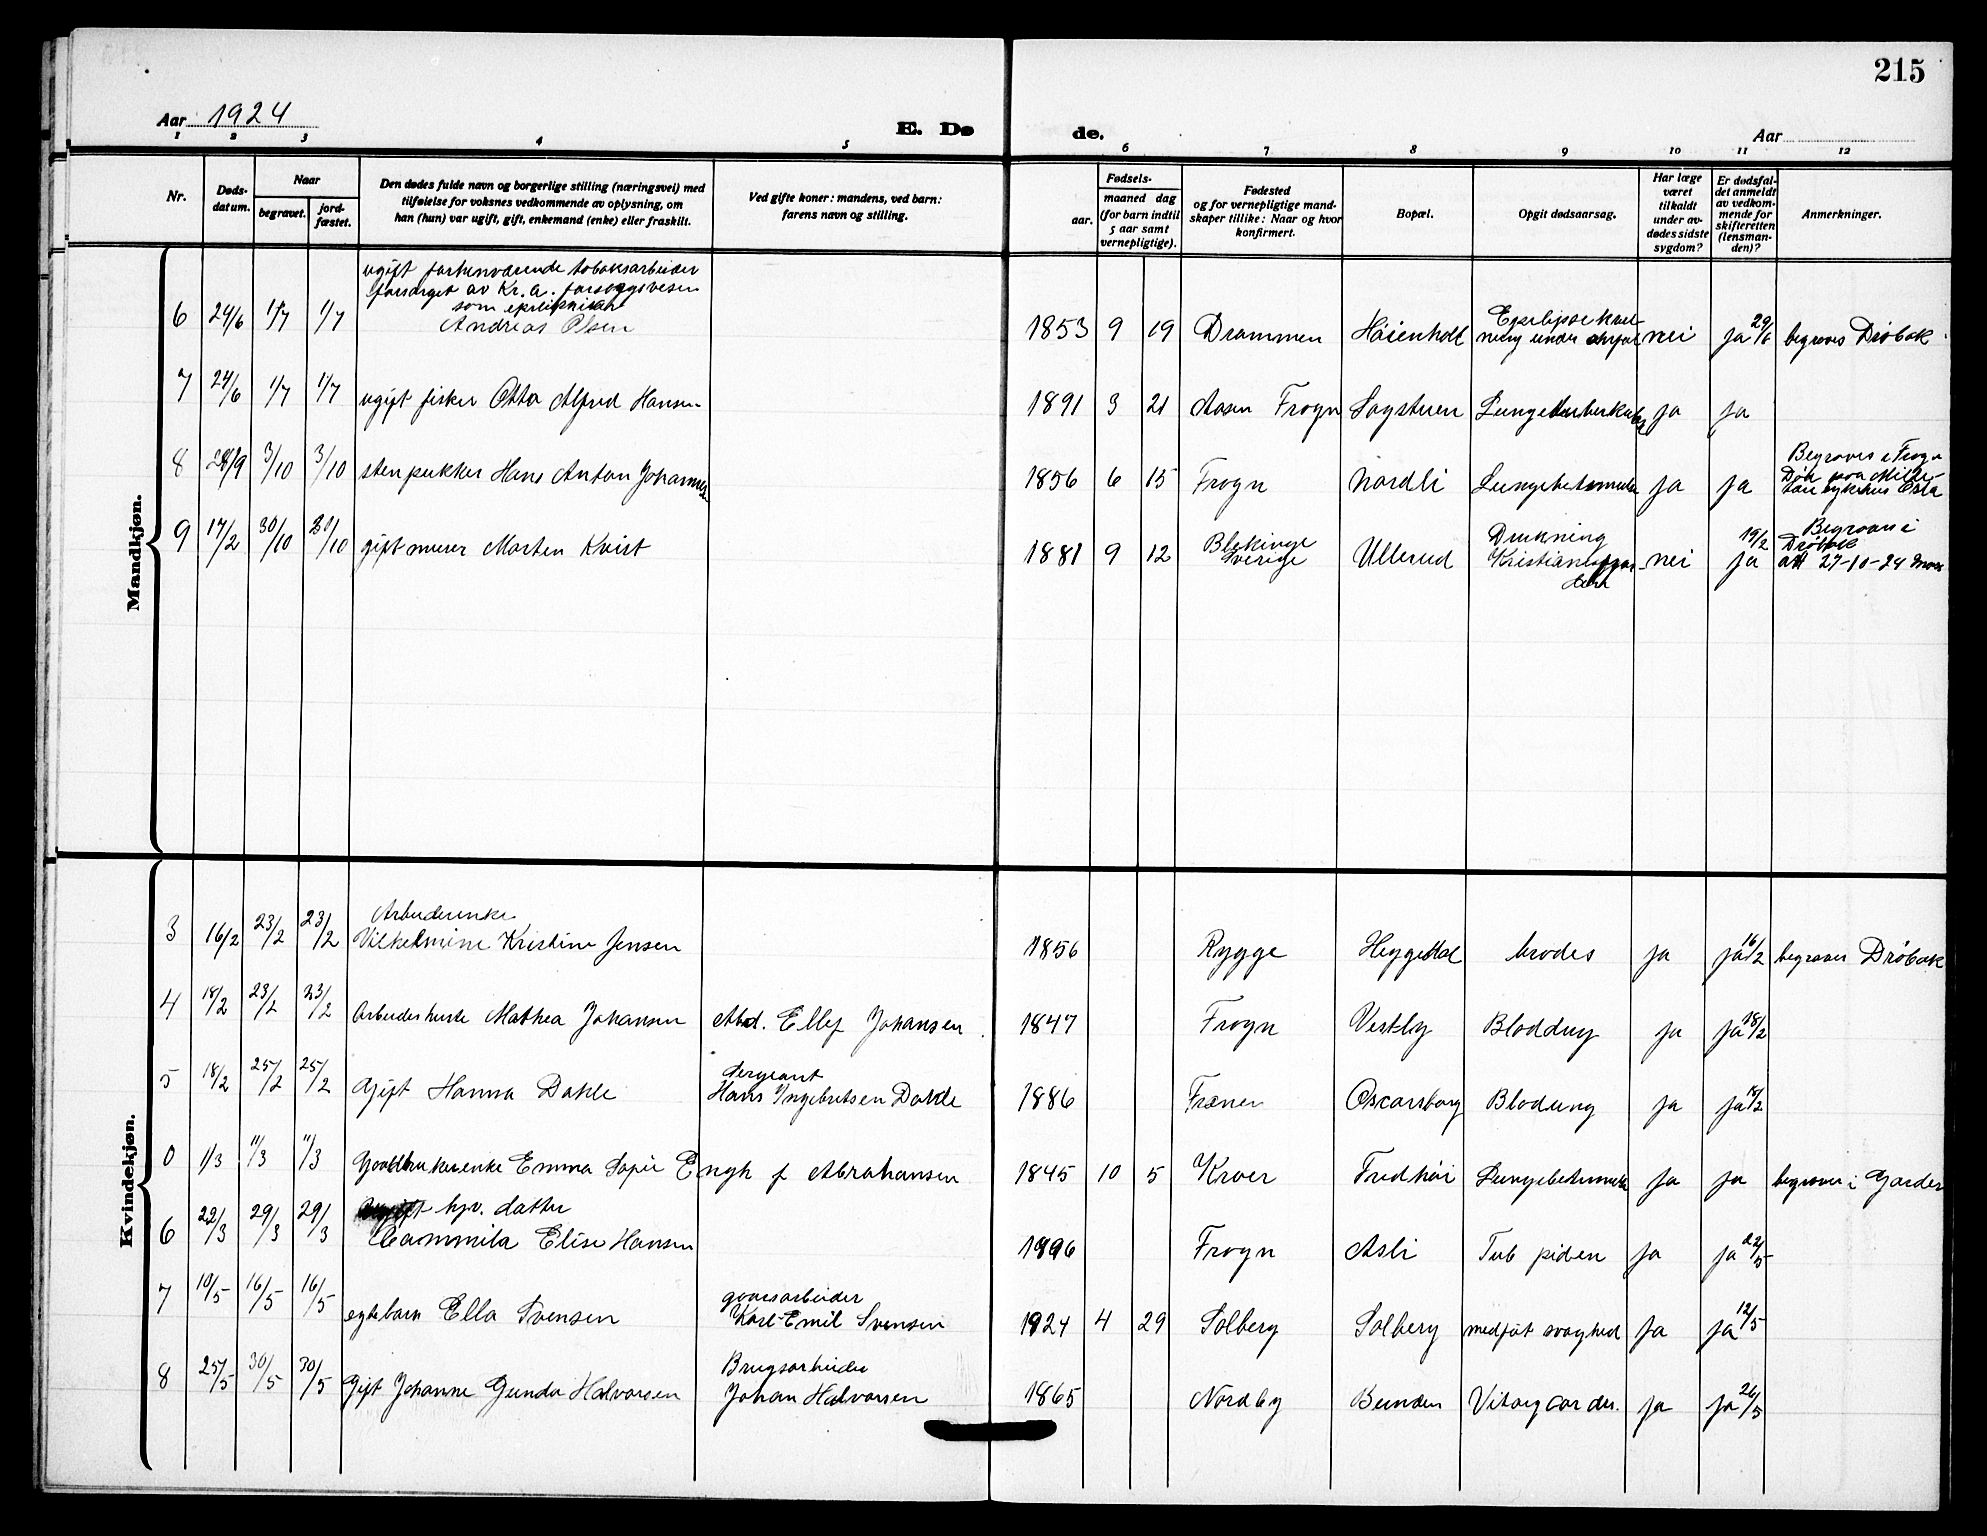 215
Aar 1924
E. Dø
de.
Aar
1 2 3 4 5 6 7 8 9 10 11 12
Nr.
Døds-
datum.
Naar
begravet.
jord-
fæstet.
Den dødes fulde navn og borgerlige stilling (næringsvei) med
tilføielse for voksnes vedkommende av oplysning, om
han (hun) var ugift, gift, enkemand (enke) eller fraskilt.
Ved gifte koner: mandens, ved barn:
farens navn og stilling.
Fødsels-
aar.
maaned dag
(for barn indtil
5 aar samt
vernepligtige).
Fødested
og for vernepligtige mand-
skaper tillike: Naar og hvor
konfirmert.
Bopæl.
Opgit dødsaarsag.
Har læge
været
tilkaldt
under av-
dødes sidste
sygdom?
Er dødsfal-
det anmeldt
av vedkom-
mende for
skifteretten
(lensman-
den)?
Anmerkninger.
Mandkjøn.
ugift forhenværende tobaksarbeider
forsørget av Kr.a. forsorgsvesen
som epileptiker
6 24/6 1/7 1/7 Andreas Olsen 1853 9 19 Drammen Høienhall nei ja 29/6 begraves Drøbak
7 24/6 1/7 1/7 ugift fisker Otto Alfred Hansen 1891 3 21 Aasen Frogn Sagstuen Lungetuberkulose ja ja
8 28/9 3/10 3/10 stenpukker Hans Anton Johannesen 1856 6 15 Frogn Nordli Lungebetennelse ja ja
Begraves i Frogn
Død paa Mili-
tære sykehus Oslo
9 17/2 30/10 30/10 gift murer Morten Kvist 1881 9 12
Blekinge
Sverige
Ullerud
Drukning
Kristianiafjor-
den
nei
19/2
ja
Begraves i
Drøbak
att 27-10-24
Kvindekjøn.
Arbeiderenke
3 16/2 23/2 23/2 Vilhelmine Kristine Jensen 1856 Rygge Heggedal ja ja 16/2 begraves Drøbak
4 18/2 23/2 23/2 Arbeiderhustr Mathea Johansen Arbd. Ellef Johansen 1847 Frogn Vestby ja ja 18/2
5 18/2 25/2 25/2 Gift Hanna Dahle
Sergeant
Hans Ingebretsen Dahle
1886 Fræner Oscarsborg Blodung ja ja 18/2
0 1/3 11/3 11/3 Gaardbrukerenke Emma Sofie Engh f Abrahamsen 1845 10 5 Kroer Fredhøi Lungebetennelse ja ja begraves i Garder
ugift hjv. datter
6 22/3 29/3 29/3 Cammila Elise Hansen 1896 Frogn Asli Tub ja ja
7 10/5 16/5 16/5 egtebarn Ella Svensen
gaarsarbeider
Karl Emil Svensen
1924 4 29 Solberg Solberg medføt svaghed ja ja 12/5
8 25/5 30/5 30/5 Gift Johanne Gunda Halvorsen
Brugsarbeider
Johan Halvorsen
1865 Nordby Bunden ja ja 26/5